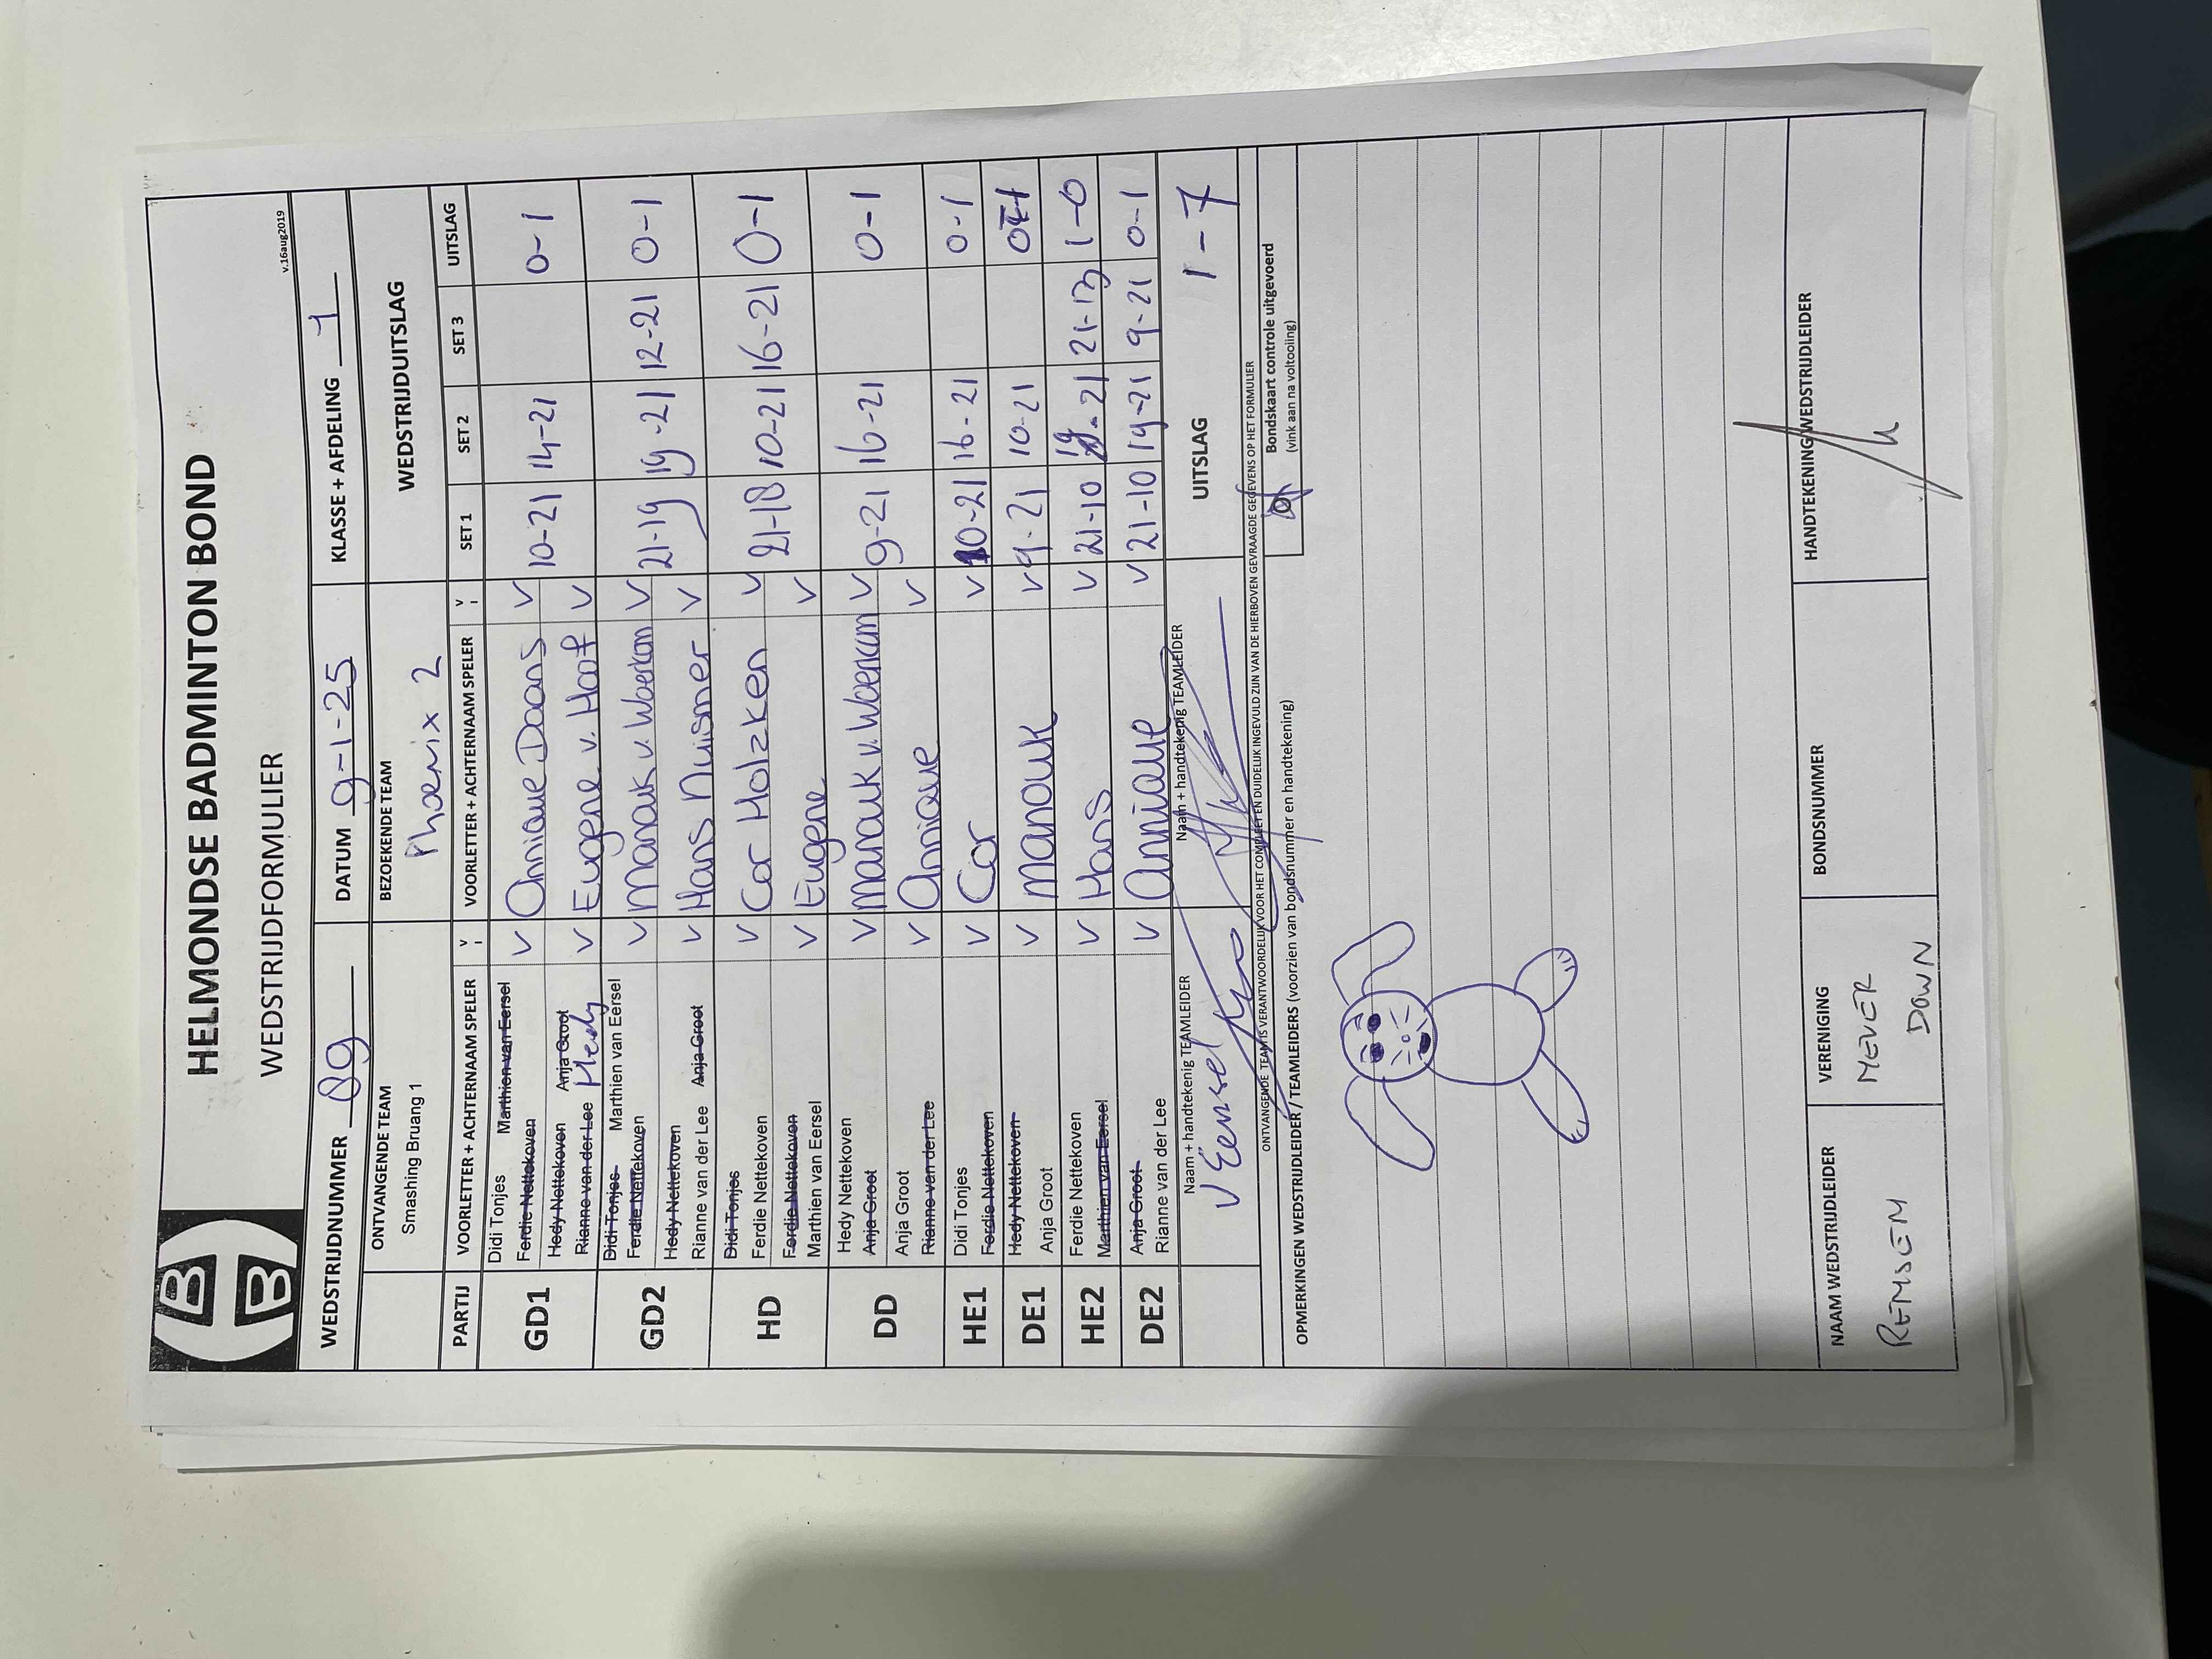 HELMONDSE BADMINTON BOND
WEDSTRIJDFORMULIER
v.16aug2019
WEDSTRIJDNUMMER 89 DATUM 9-1-25 KLASSE + AFDELING 1
ONTVANGENDE TEAM BEZOEKENDE TEAM WEDSTRIJDUITSLAG
Smashing Bruang 1 Phoenix 2
PARTIJ VOORLETTER + ACHTERNAAM SPELER V VOORLETTER + ACHTERNAAM SPELER V SET 1 SET 2 SET 3 UITSLAG
GD1 Didi Tonjes Marthien van Eersel V Annique Daans V 10-21 14-21 0-1
Ferdie Nettekoven
Hedy Nettekoven Anja Groot V Eugene v. Hoof V
Rianne van der Lee Hedy
GD2 Didi Tonjes Marthien van Eersel V Manouk v. Woerkom V 21-19 19-21 12-21 0-1
Ferdie Nettekoven
Hedy Nettekoven V Hans Nuismer V
Rianne van der Lee Anja Groot
HD Didi Tonjes V Cor Holzken V 21-18 10-21 16-21 0-1
Ferdie Nettekoven
Ferdie Nettekoven V Eugene V
Marthien van Eersel
DD Hedy Nettekoven V Manouk v. Woerkum V 9-21 16-21 0-1
Anja Groot
Anja Groot V Annique V
Rianne van der Lee
HE1 Didi Tonjes V Cor V 10-21 16-21 0-1
Ferdie Nettekoven
DE1 Hedy Nettekoven V Manouk V 9-21 10-21 0-1
Anja Groot
HE2 Ferdie Nettekoven V Hans V 21-10 19-21 21-13 1-0
Marthien van Eersel
DE2 Anja Groot V Annique V 21-10 19-21 9-21 0-1
Rianne van der Lee
Naam + handtekenig TEAMLEIDER Naam + handtekenig TEAMLEIDER UITSLAG 1-7
v Eersel
ONTVANGENDE TEAM IS VERANTWOORDELIJK VOOR HET COMPLEET EN DUIDELIJK INGEVULD ZIJN VAN DE HIERBOVEN GEVRAAGDE GEGEVENS OP HET FORMULIER
OPMERKINGEN WEDSTRIJDLEIDER / TEAMLEIDERS (voorzien van bondsnummer en handtekening)
Bondskaart controle uitgevoerd
(vink aan na voltooling)
NAAM WEDSTRIJDLEIDER VERENIGING BONDSNUMMER HANDTEKENING WEDSTRIJDLEIDER
REMSEM NEVER
DOWN